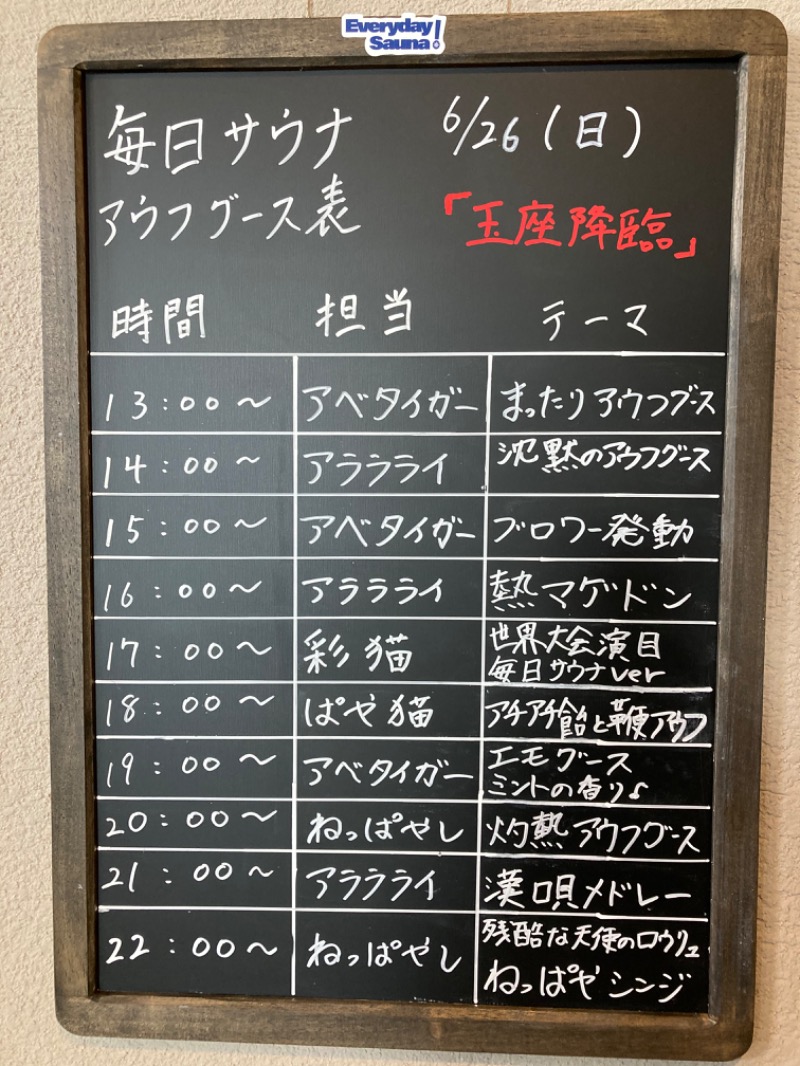 Everyday
Sauna!
毎日サウナ 6/26(日)
アウフグース表 「玉座降臨」
時間 担当 テーマ
13:00〜 アベタイガー まったりアウフグース
14:00〜 アラララライ 沈黙のアウフグース
15:00〜 アベタイガー ブロワー発動
16:00〜 アラララライ 熱マゲドン
17:00〜 彩猫 世界大会演目
毎日サウナver
18:00〜 ぱや猫 アチアチ飴と鞭アウフ
19:00〜 アベタイガー エモグース
ミントの香り♪
20:00〜 ねっぱやし 灼熱アウフグース
21:00〜 アラララライ 漢唄メドレー
22:00〜 ねっぱやし 残酷な天使のロウリュ
ねっぱやシンジ